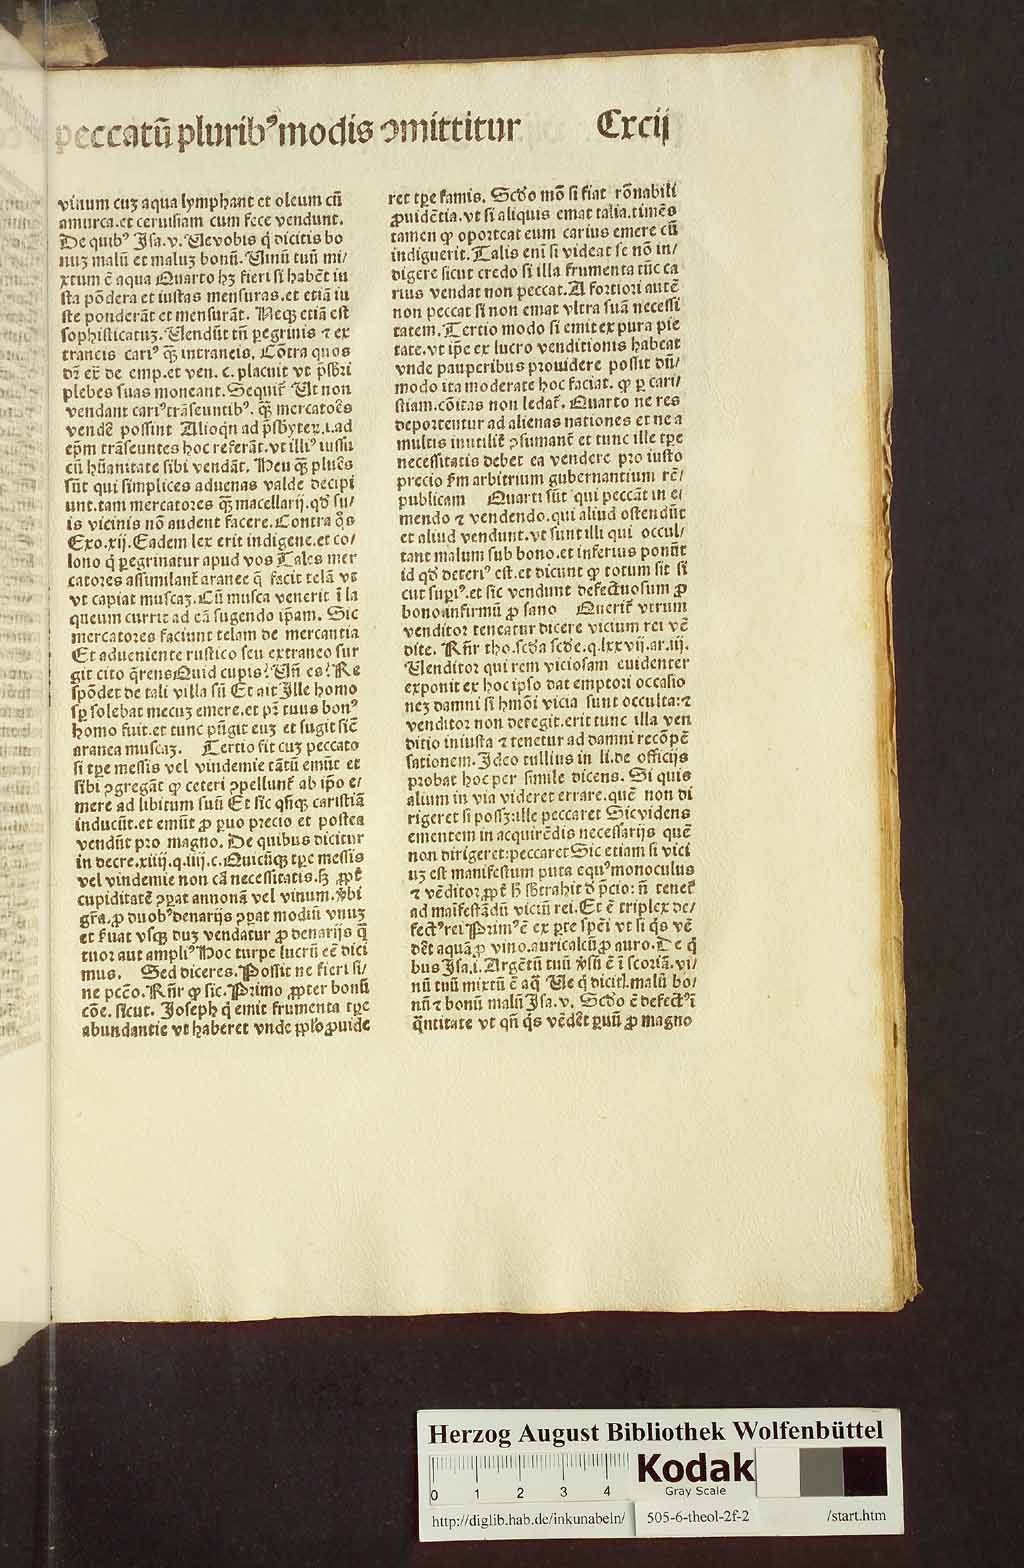 peccatū pluribꝰ modis ↄmittitur Cxcij
vinum cuꝫ aqua lymphant et oleum cū
amurca. et ceruisiam cum fece vendunt.
De quibꝰ Isa.v. Ue vobis q̄ dicitis bo
nuꝫ malū et maluꝫ bonū. Uinū tuū mi/
xtum ē aqua Quarto hꝫ fieri si habēt iu
sta pōdera et iustas mensuras. et etiā iu
ste ponderāt et mensurāt. Neqꝫ etiā est
sophisticatuꝫ. Uendūt tn̄ ꝑegrinis ⁊ ex
traneis cariꝰ qꝫ̄ intraneis. Cōtra quos
dr̄ ex̄ de emp. et ven. c. placuit vt p̄sbri
plebes suas moneant. Sequit᷑ Ut non
vendant cariꝰ trāseuntibꝰ. qꝫ̄ mercatoēs
vendē possint Alioqn̄ ad p̄sbyteꝝ.i.ad
ep̄m trāseuntes hoc referāt. vt illiꝰ iussu
cū hūanitate sibi vendāt. Heu qꝫ̄ plurēs
sūt qui simplices aduenas valde decipi
unt. tam mercatores qꝫ̄ macellarij. qd̕ su/
is vicinis nō audent facere. Contra qo̊s
Exo.xij. Eadem lex erit indigene. et co/
lono q̄ ꝑegrinatur apud vos Tales mer
catores assimilant᷑ aranee q̄ facit telā vt
vt capiat muscaꝫ. Cū musca venerit ī la
queum currit ad eā sugendo ip̄am. Sic
mercatores faciunt telam de mercantia
Et adueniente rustico seu extraneo sur
git cito q̄rens Quid cupis? Un̄ es? Re
spōdet de tali villa sū Et ait Ille homo
sꝑ solebat mecuꝫ emere. et pr̄ tuus bonꝰ
homo fuit. et tunc pūgit euꝫ et sugit sic̄
aranea muscaꝫ. Tertio fit cuꝫ peccato
si tꝑe messis vel vindemie tātū emūt et
sibi ↄgregāt ꝙ ceteri ↄpellunt᷑ ab ip̄o e/
mere ad libitum suū Et sic qn̄qꝫ caristiā
inducūt. et emūt ꝓ ꝑuo precio et postea
vendūt pro magno. De quibus dicitur
in decre.xiiij.q.iiij.c. Quicūqꝫ tꝑe messis
vel vindemie non cā necessitatis. sꝫ ꝓpt᷑
cupiditatē ↄꝑat annonā vel vinum. v̕bi
gr̄a. ꝓ duobꝰ denarijs ↄꝑat modiū vnuꝫ
et s̕uat vsqꝫ duꝫ vendatur ꝓ denarijs q̄
tuor aut ampliꝰ Hoc turpe lucrū eē dici
mus. Sed diceres. Possit ne fieri si/
ne pctō. Rn̄r ꝙ sic. Primo ꝓpter bonū
cōe. sicut. Joseph q̄ emit frumenta tꝑe
abundantie vt haberet vnde pp̄lo ꝓuide
ret tꝑe famis. Scd̕o mō si fiat rōnabili
ꝓuidētia. vt si aliquis emat talia. timēs
tamen ꝙ oporteat eum carius emere cū
indiguerit. Talis enī si videat se nō in/
digere sicut credo si illa frumenta tūc ca
rius vendat non peccat. A fortiori autē
non peccat si non emat vltra suā necessi
tatem. Tertio modo si emit ex pura pie
tate. vt ip̄e ex lucro venditionis habeat
vnde pauperibus prouidere possit dū/
modo ita moderate hoc faciat. ꝙ ꝑ cari/
stiam. cōitas non ledat᷑. Quarto ne res
deportentur ad alienas nationes et ne a
multis inutilit᷑ ↄsumant᷑ et tunc ille tꝑe
necessitatis debet ea vendere pro iusto
precio s̕m arbitrium gubernantium rē/
publicam Quarti sūt qui peccāt in e/
mendo ⁊ vendendo. qui aliud ostendūt
et aliud vendunt. vt sunt illi qui occul/
tant malum sub bono. et inferius ponūt
id qd̕ deteriꝰ est. et dicunt ꝙ totum sit si
cut suꝑiꝰ. et sic vendunt defectuosum ꝓ
bono infirmū ꝓ sano Querit᷑ vtrum
venditor teneatur dicere vicium rei vē
dite. Rn̄r tho.scd̕a scd̕e.q.lxxvij.ar.iij.
Uenditor qui rem viciosam euidenter
exponit ex hoc ipso dat emptori occasio
neꝫ damni si hmōi vicia sunt occulta: ⁊
venditor non detegit. erit tunc illa ven
ditio iniusta ⁊ tenetur ad damni recōpē
sationem. Ideo tullius in li. de officijs
probat hoc per simile dicens. Si quis
alium in via videret errare. quē non di
rigeret si possꝫ: ille peccaret Sic videns
ementem in acquirēdis necessarijs quē
non dirigeret: peccaret Sic etiam si vici
uꝫ est manifestum puta equꝰ monoculus
⁊ vēditor ꝓpt᷑ h̄ sb̄trahit d̓ p̄cio: n̄ tenet᷑
ad māifestādū viciū rei. Et ē triplex de/
fectꝰ rei Primꝰ ē ex ꝑte spēi vt si q̊s vē
dēt aquā ꝓ vino. auricalcū ꝓ auro. De q̄
bus Isa.i. Argētū tuū v̕sū ē ī scoriā. vi/
nū tuū mixtū ē aq̄ Ue q̄ dicit̕. malū bo/
nū ⁊ bonū malū Isa.v. Scd̕o ē defectꝰ ī
q̄ntitate vt qn̄ q̊s vēdēt ꝑuū ꝓ magno
Herzog August Bibliothek Wolfenbüttel
0 1 2 3 4
Kodak
Gray Scale
http://diglib.hab.de/inkunabeln/ 505-6-theol-2f-2 /start.htm